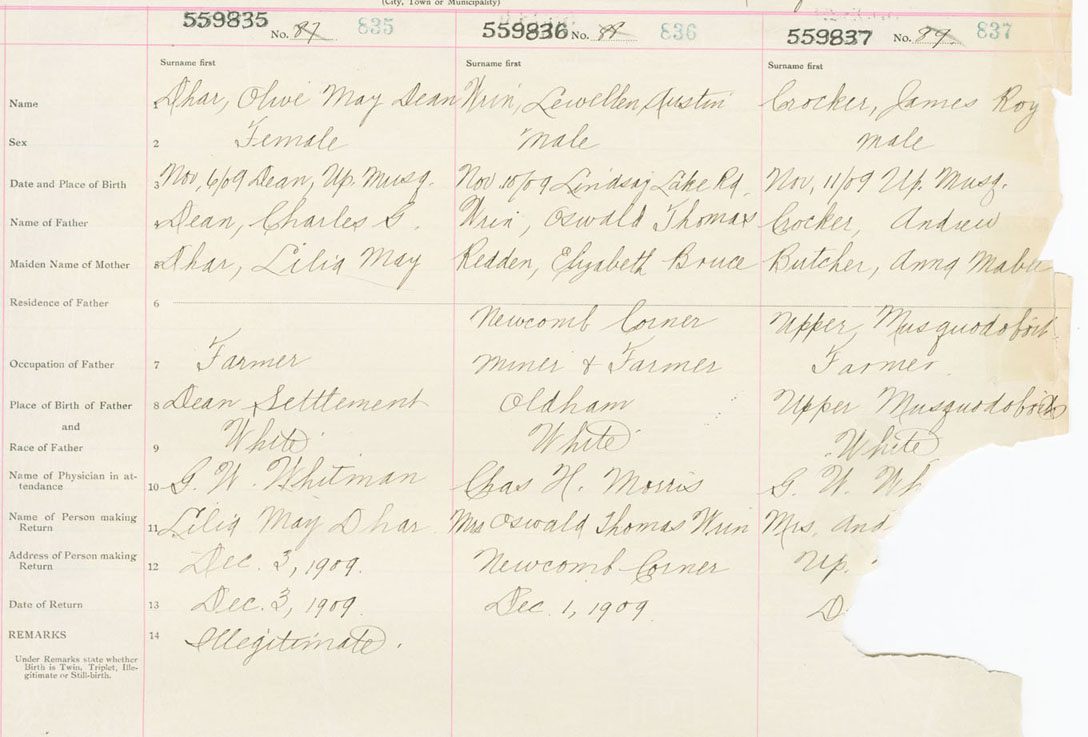 (City, Town or Municipality)
559835 No. 87 835 559836 No. 88 836 559837 No. 89 837
Surname first Surname first Surname first
Name 1 Dhar, Olive May Dean Wrin, Lewellen Austin Crocker, James Roy
Sex 2 Female Male Male
Date and Place of Birth 3 Nov, 6/09 Dean, Up. Musq. Nov. 10/09 Lindsay Lake Rd. Nov, 11/09 Up. Musq.
Name of Father 4 Dean, Charles G. Wrin, Oswald Thomas Crocker, Andrew
Maiden Name of Mother 5 Dhar, Lilia May Redden, Elizabeth Bruce Butcher, Anna
Residence of Father 6
Newcomb Corner Upper, Musquodoboit
Occupation of Father 7 Farmer Miner & Farmer Farmer
Place of Birth of Father 8 Dean Settlement Oldham Upper Musquodoboit
and
Race of Father 9 White White White
Name of Physician in at-
tendance 10 G. W. Whitman Chas H. Morris G. W. Wh
Name of Person making
Return 11 Lilia May Dhar Mrs Oswald Thomas Wrin Mrs. And
Address of Person making
Return 12 Dec. 3, 1909. Newcomb Corner Up.
Date of Return 13 Dec. 3, 1909. Dec. 1, 1909. D
REMARKS 14 Illegitimate.
Under Remarks state whether
Birth is Twin, Triplet, Ille-
gitimate or Still-birth.